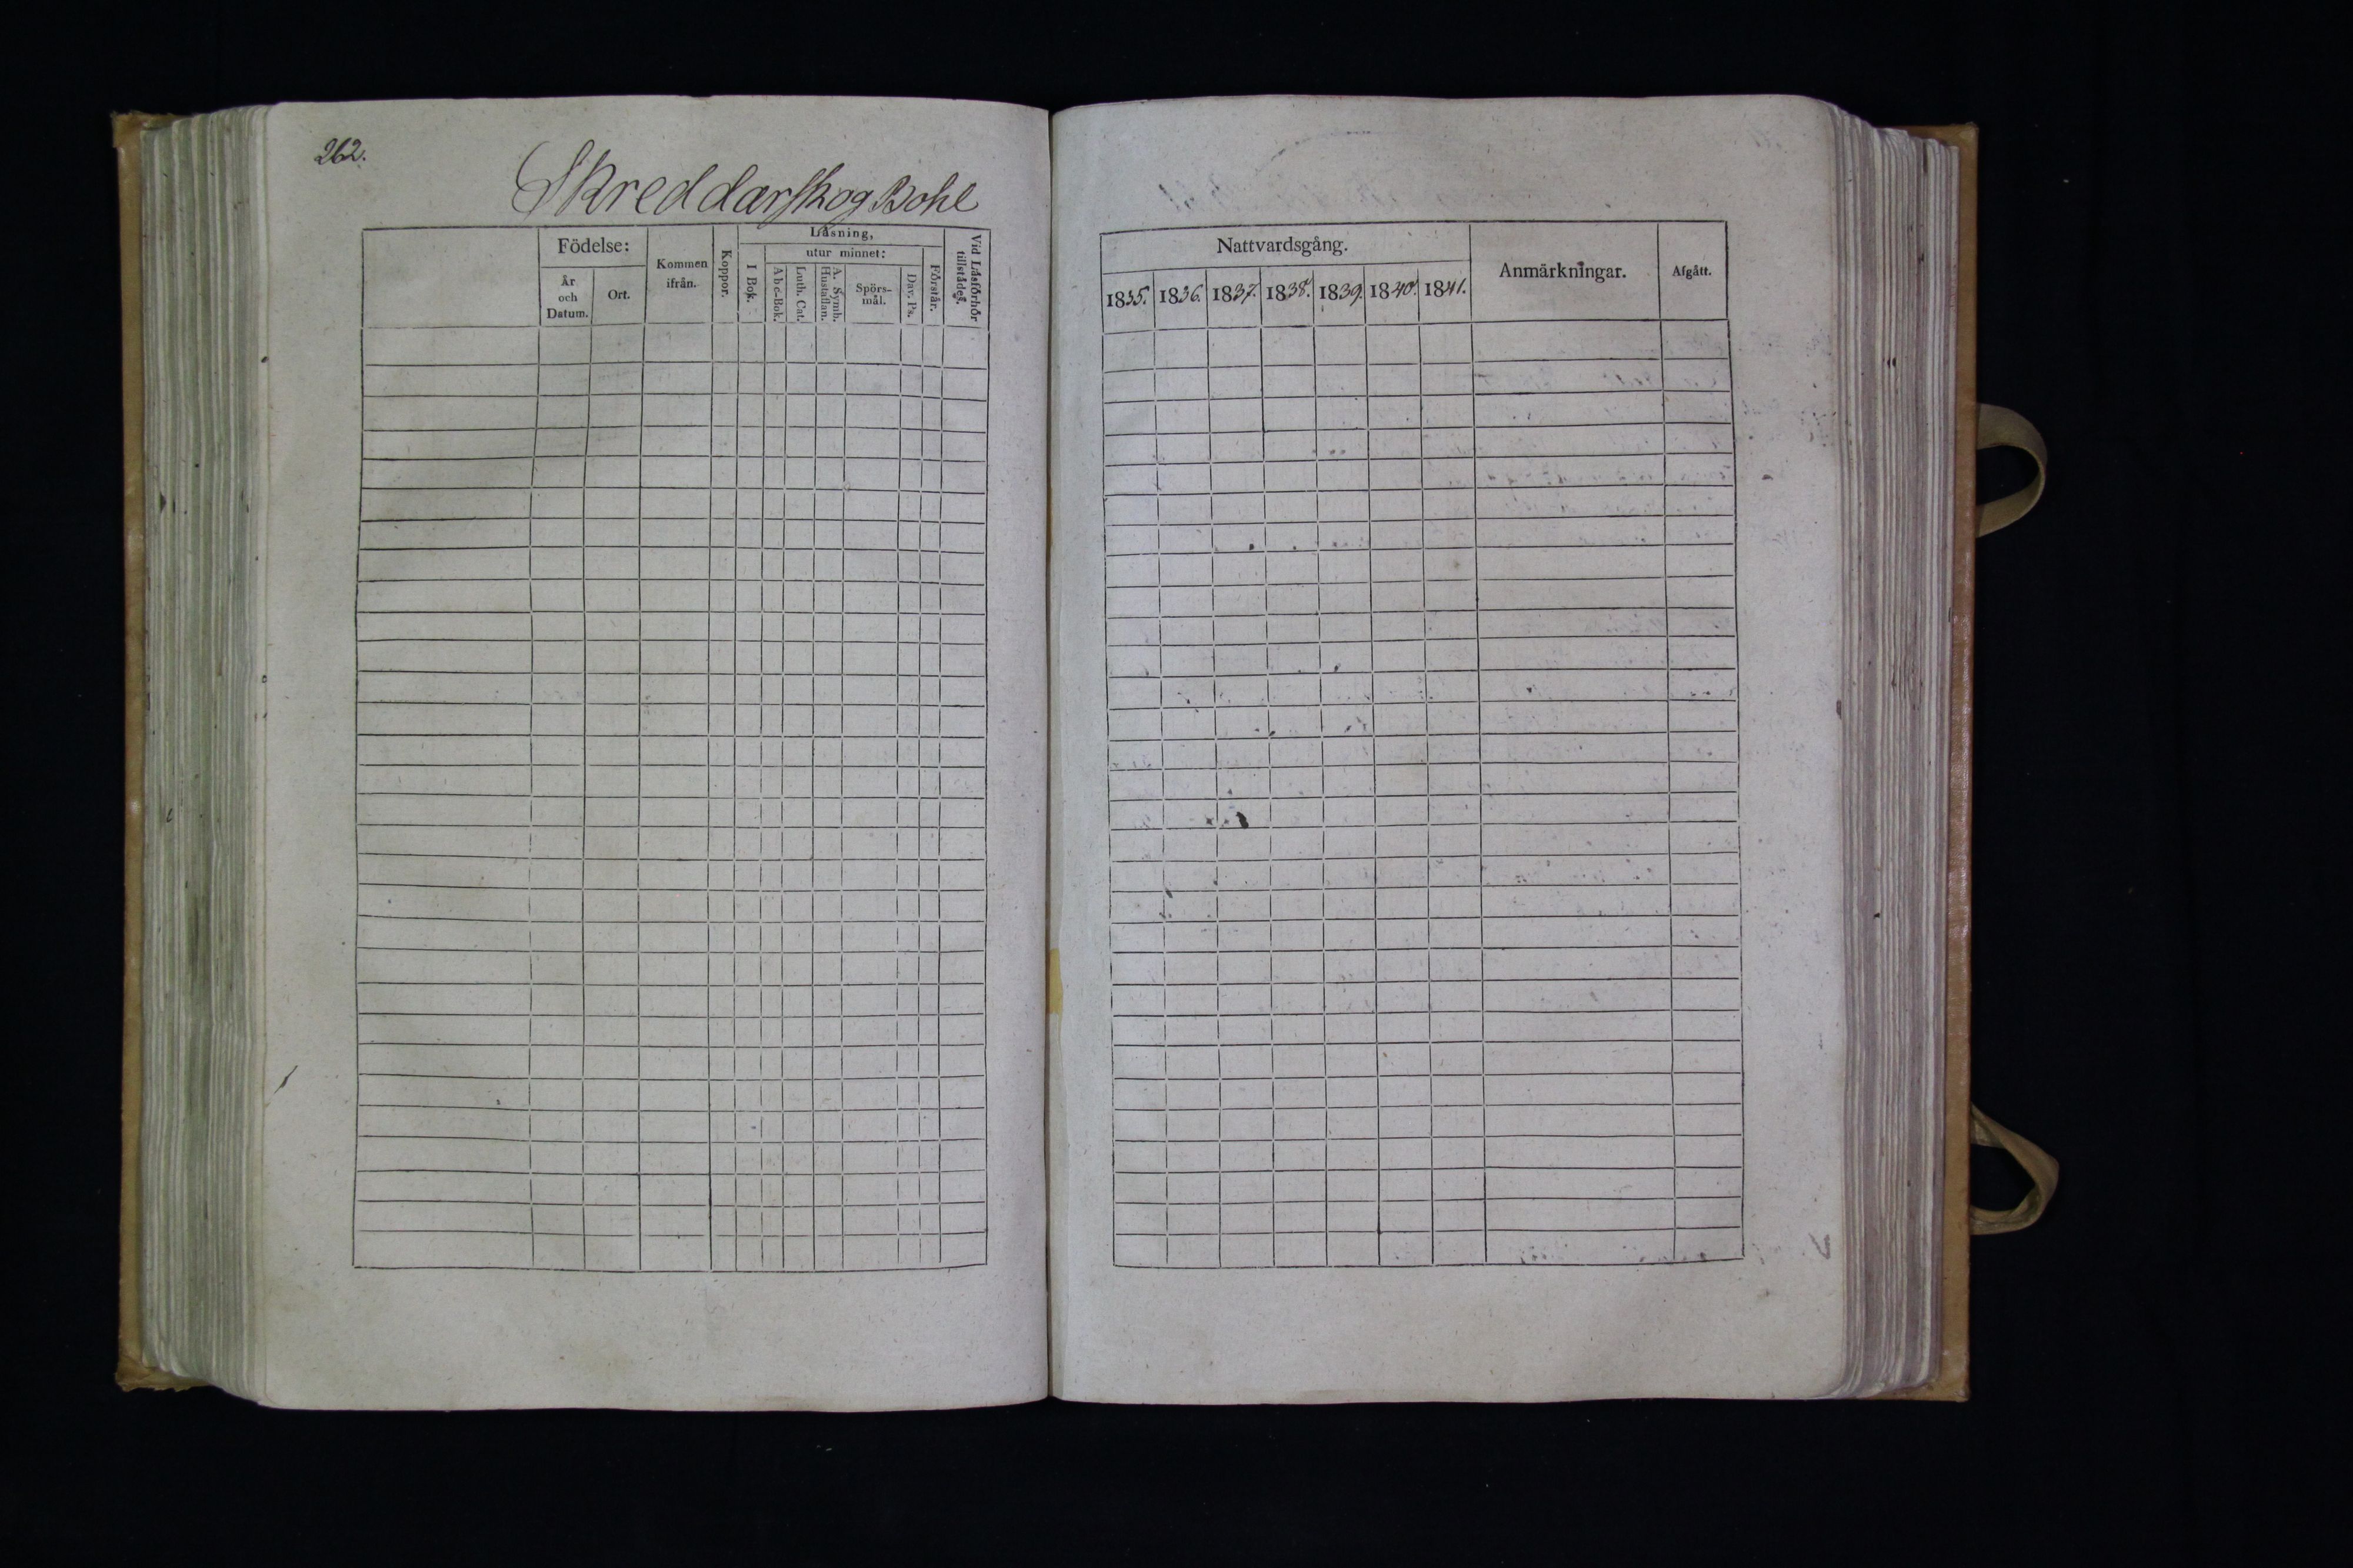 262.
Skreddarskog Bohl
Födelse:
År och Datum.
Ort.
Kommen ifrån.
Koppor.
Läsning,
I Bok.
utur minnet:
Abc-Bok.
Luth. Cat.
A. Symb. Hustaflan.
Spörs-mål.
Dav. Ps.
Förstår.
Vid Läsförhör tillstädes.
Nattvardsgång.
1835. 1836. 1837. 1838. 1839. 1840. 1841.
Anmärkningar.
Afgått.